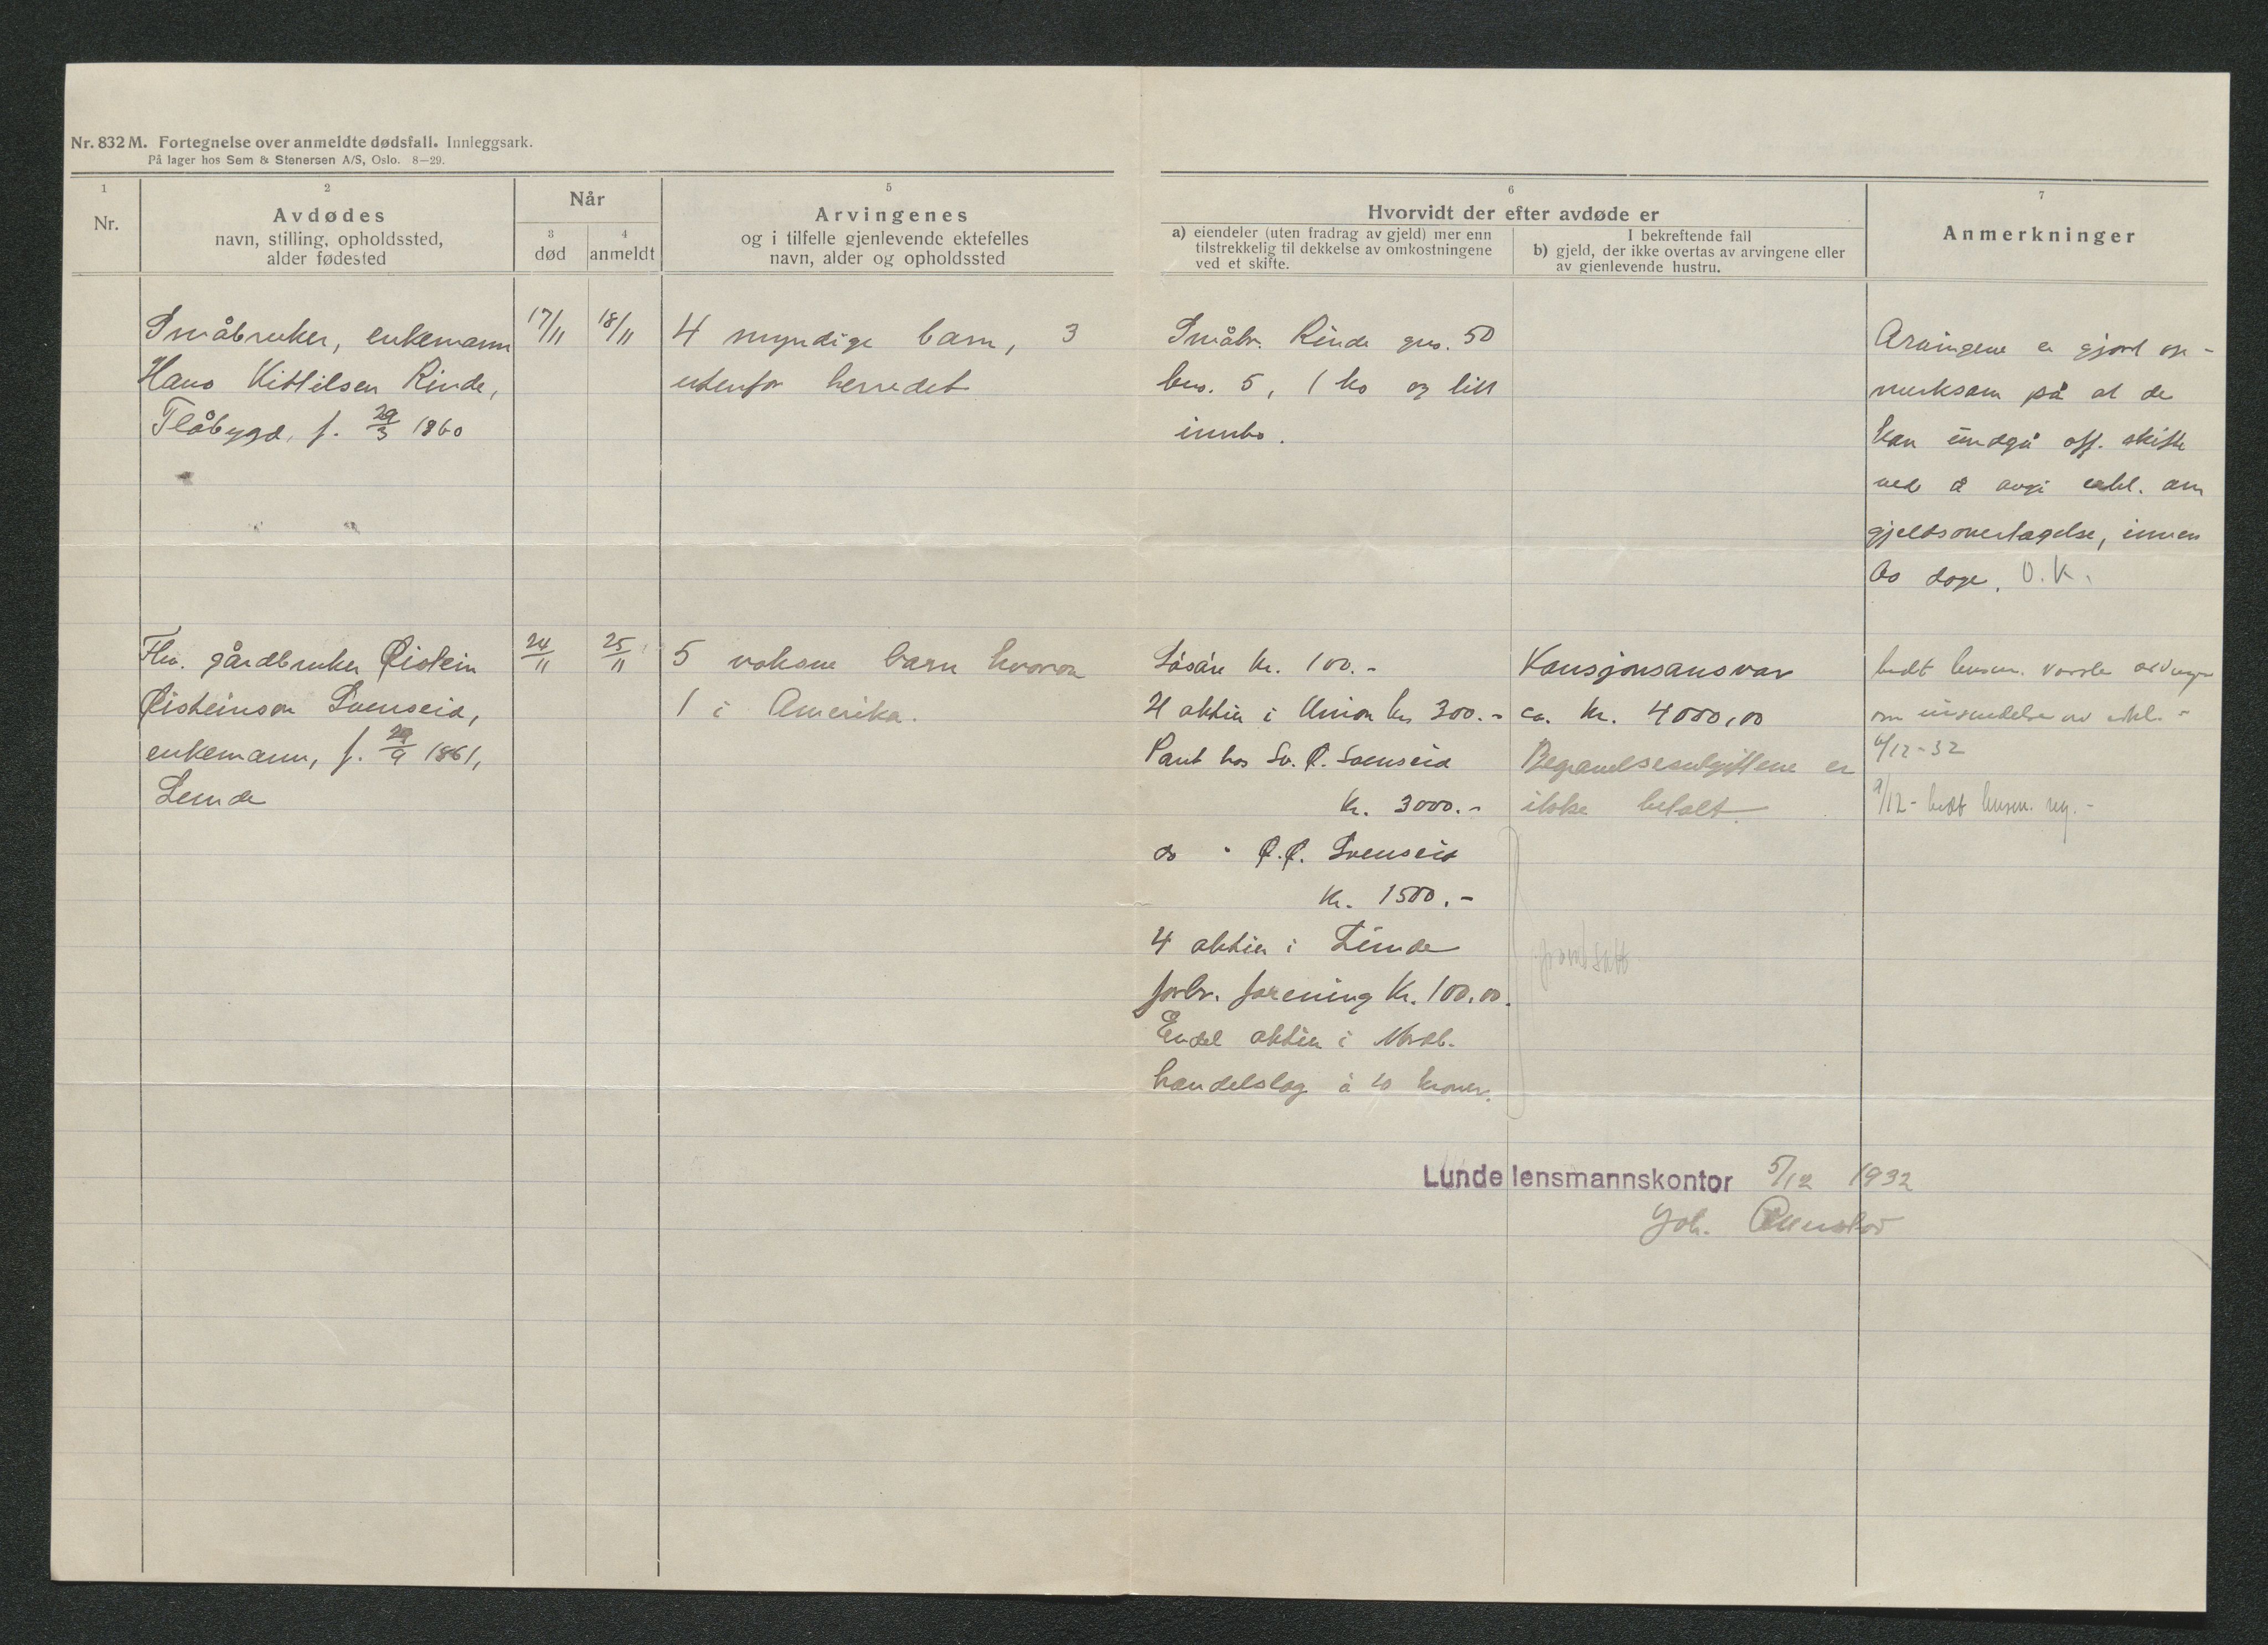 Nr. 832 M. Fortegnelse over anmeldte dødsfall. Innleggsark.
På lager hos Sem & Stenersen A/S, Oslo. 8—29.
1
Nr.
2
Avdødes
navn, stilling, opholdssted,
alder fødested
Når
3
død
4
anmeldt
5
Arvingenes
og i tilfelle gjenlevende ektefelles
navn, alder og opholdssted
6
Hvorvidt der efter avdøde er
a) eiendeler (uten fradrag av gjeld) mer enn
tilstrekkelig til dekkelse av omkostningene
ved et skifte.
I bekreftende fall
b) gjeld, der ikke overtas av arvingene eller
av gjenlevende hustru.
7
Anmerkninger
Småbruker, enkemann
Hans Kittilsen Rinde,
Flåbygd, f. 29/3 1860
17/11
18/11
4 myndige barn, 3
utenfor herredet
Småbr. Rinde gnr. 50
bnr. 5, 1 ko og litt
innbo.
Arvingene er gjort op-
merksom på at de
kan undgå off. skifte
ved å avgi erkl. om
gjeldsovertagelse, innen
60 dage. O.K.
Fhv. gårdbruker Øistein
Øisteinson Svenseid,
enkemann, f. 29/9 1861,
Lunde
24/11
25/11
5 voksne barn hvorav
1 i Amerika.
Løsøre kr. 100.-
4 aktier i Union kr. 300.-
Pant hos Sv. Ø. Svenseid
kr. 3000.-
do " Ø.Ø. Svenseid
kr. 1500.-
4 aktier i Lunde
forbr. forening kr. 100.00.
Endel aktier i
handelslag à 10 kroner.
Kausjonsansvar
ca. kr. 4000,00
Begravelsesutgiftene er
ikke betalt.
pantsatt
bedt lensm. varsle arvinger
om innsendelse av erkl. -
6/12-32
9/12 - bedt lensm.
Lunde lensmannskontor 5/12 1932
Joh.